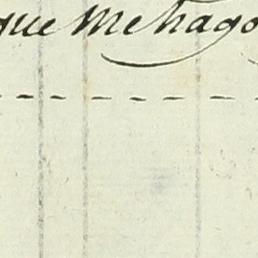 que me hago